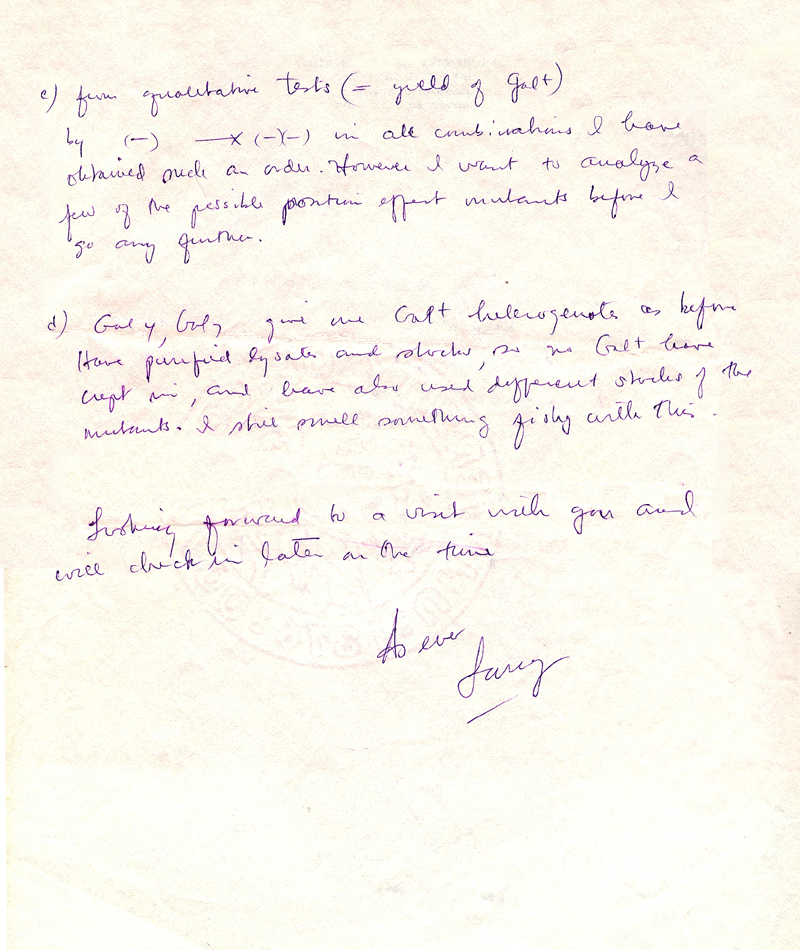 c) from qualitative tests (= yield of Gal+)
by (-) —x (-)(-) in all combinations I have
obtained such an order. However I want to analyze a
few of the possible position effect mutants before I
go any further.
d) Gal4, Gal7 give me Gal+ heterogenotes as before
Have purified lysates and stocks, so no Gal+ have
crept in, and have also used different stocks of the
mutants. I still smell something fishy with this.
Looking forward to a visit with you and
will check in later on the time
As ever
Larry